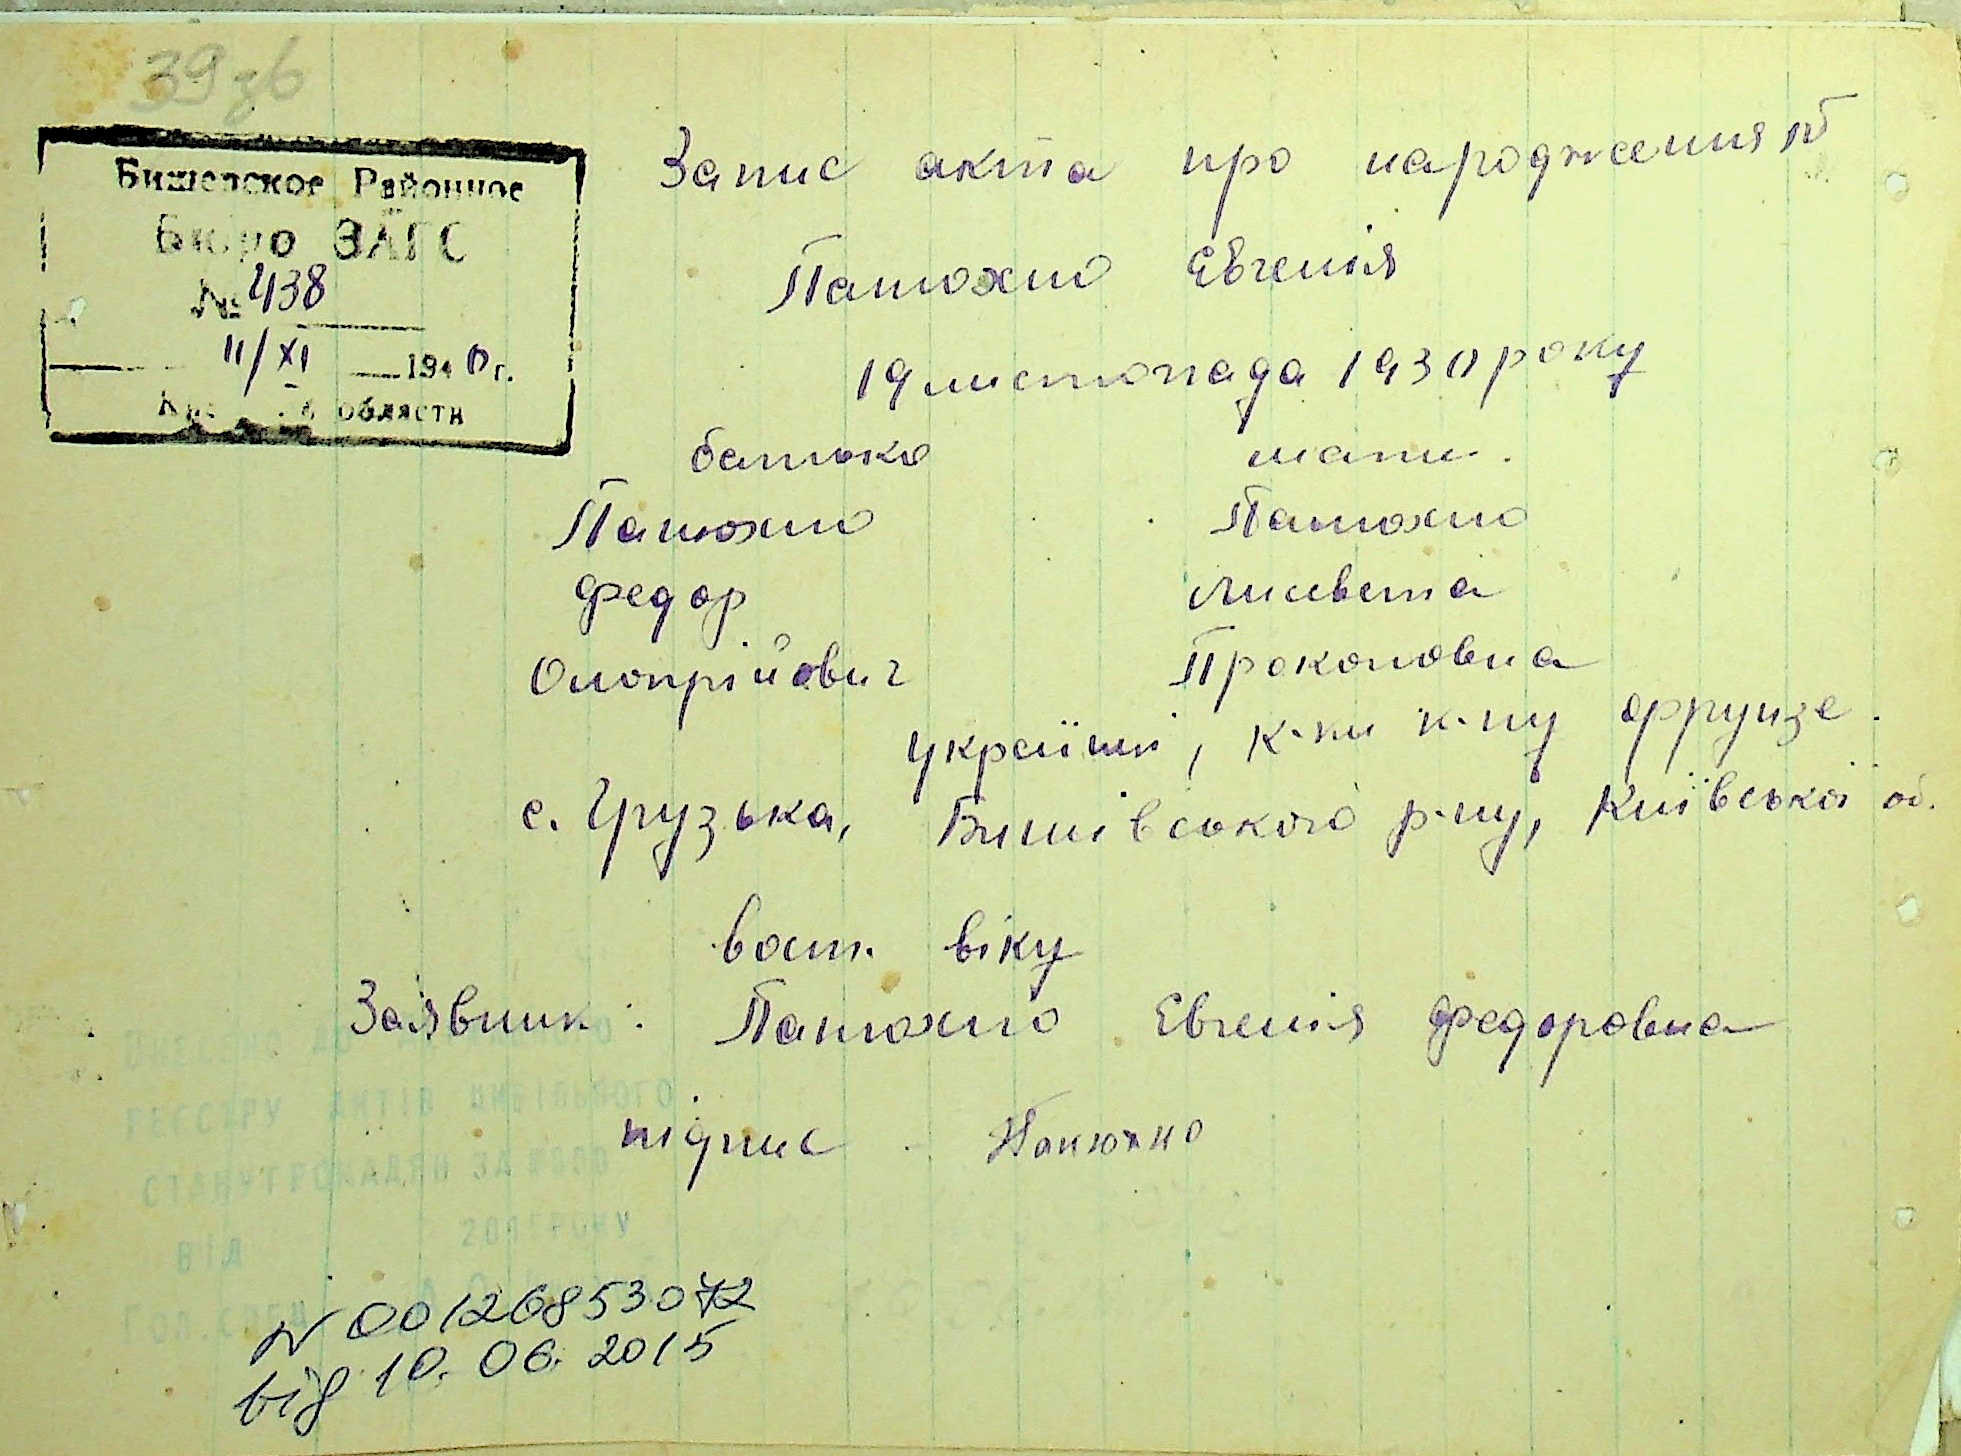 39 зв
Бишевское Районное
Бюро ЗАГС
№ 438
11/XI 1940 г.
области
Запис акта про народження №
Панюхно Евгенія
19 листопада 1930 року
батько мати.
Панюхно Панюхно
Федор Лисвета
Онопрійович Прокоповна
українці, к-ки к-пу Фрунзе.
с. Грузька, Бишівського р-ну, Київської об.
вост. віку
Заявник: Панюхно Евгенія Федоровна
підпис Панюхно
РЕЄСТРУ АКТІВ ЦИВІЛЬНОГО
СТАНУ ГРОМАДЯН ЗА
ВІД 200 РОКУ
N 00126853072
від 10.06.2015